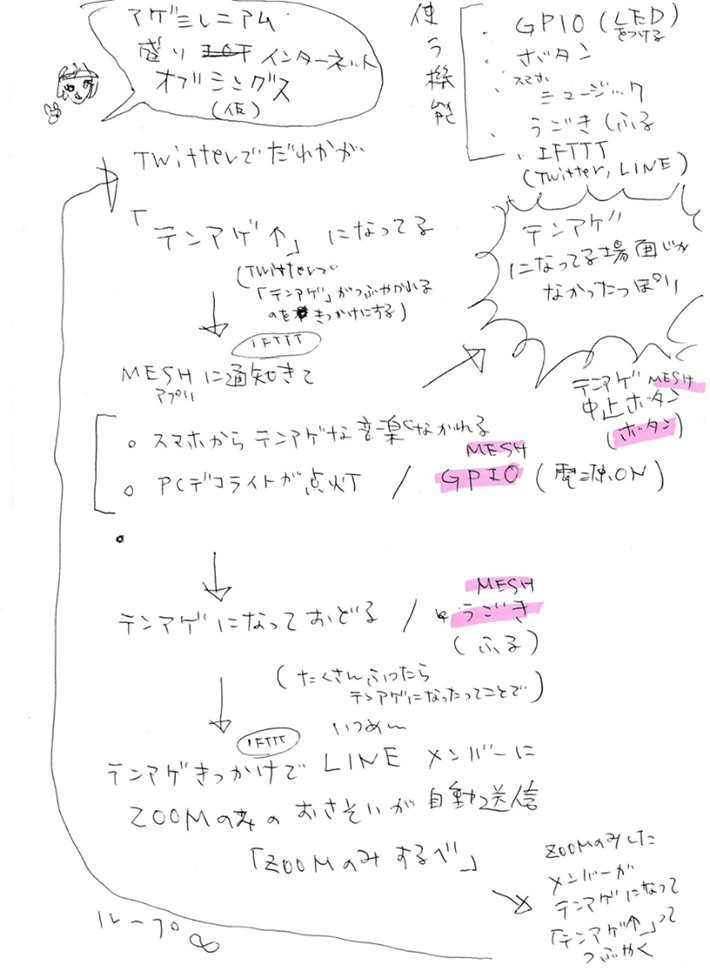 アゲミレニアム
盛り インターネット
オブシングス
(仮)
使う機能
・GPIO (LED)
をつける
・ボタン
・スマホ
ミュージック
・うごき (ふる
・IFTTT
(Twitter, LINE)
Twitterでだれかが
「テンアゲ↑」になってる
(Twitterで
「テンアゲ」がつぶやかれる
のをきっかけにする)
テンアゲ
になってる場面じゃ
なかったっぽい
↓
IFTTT
MESHに通知きて
アプリ
テンアゲMESH
中止ボタン
(ボタン)
・スマホからテンアゲな音楽ながれる
MESH
・PCデコライトが点灯 / GPIO (電源ON)
・
↓
MESH
テンアゲになっておどる / うごき
(ふる)
↓
(たくさんふったら
テンアゲになったってことで)
いつめん
IFTTT
テンアゲきっかけでLINEメンバーに
ZOOMのみのおさそいが自動送信
「ZOOMのみするべ」
ZOOMのみした
メンバーが
テンアゲになって
「テンアゲ↑」って
つぶやく
ループ∞